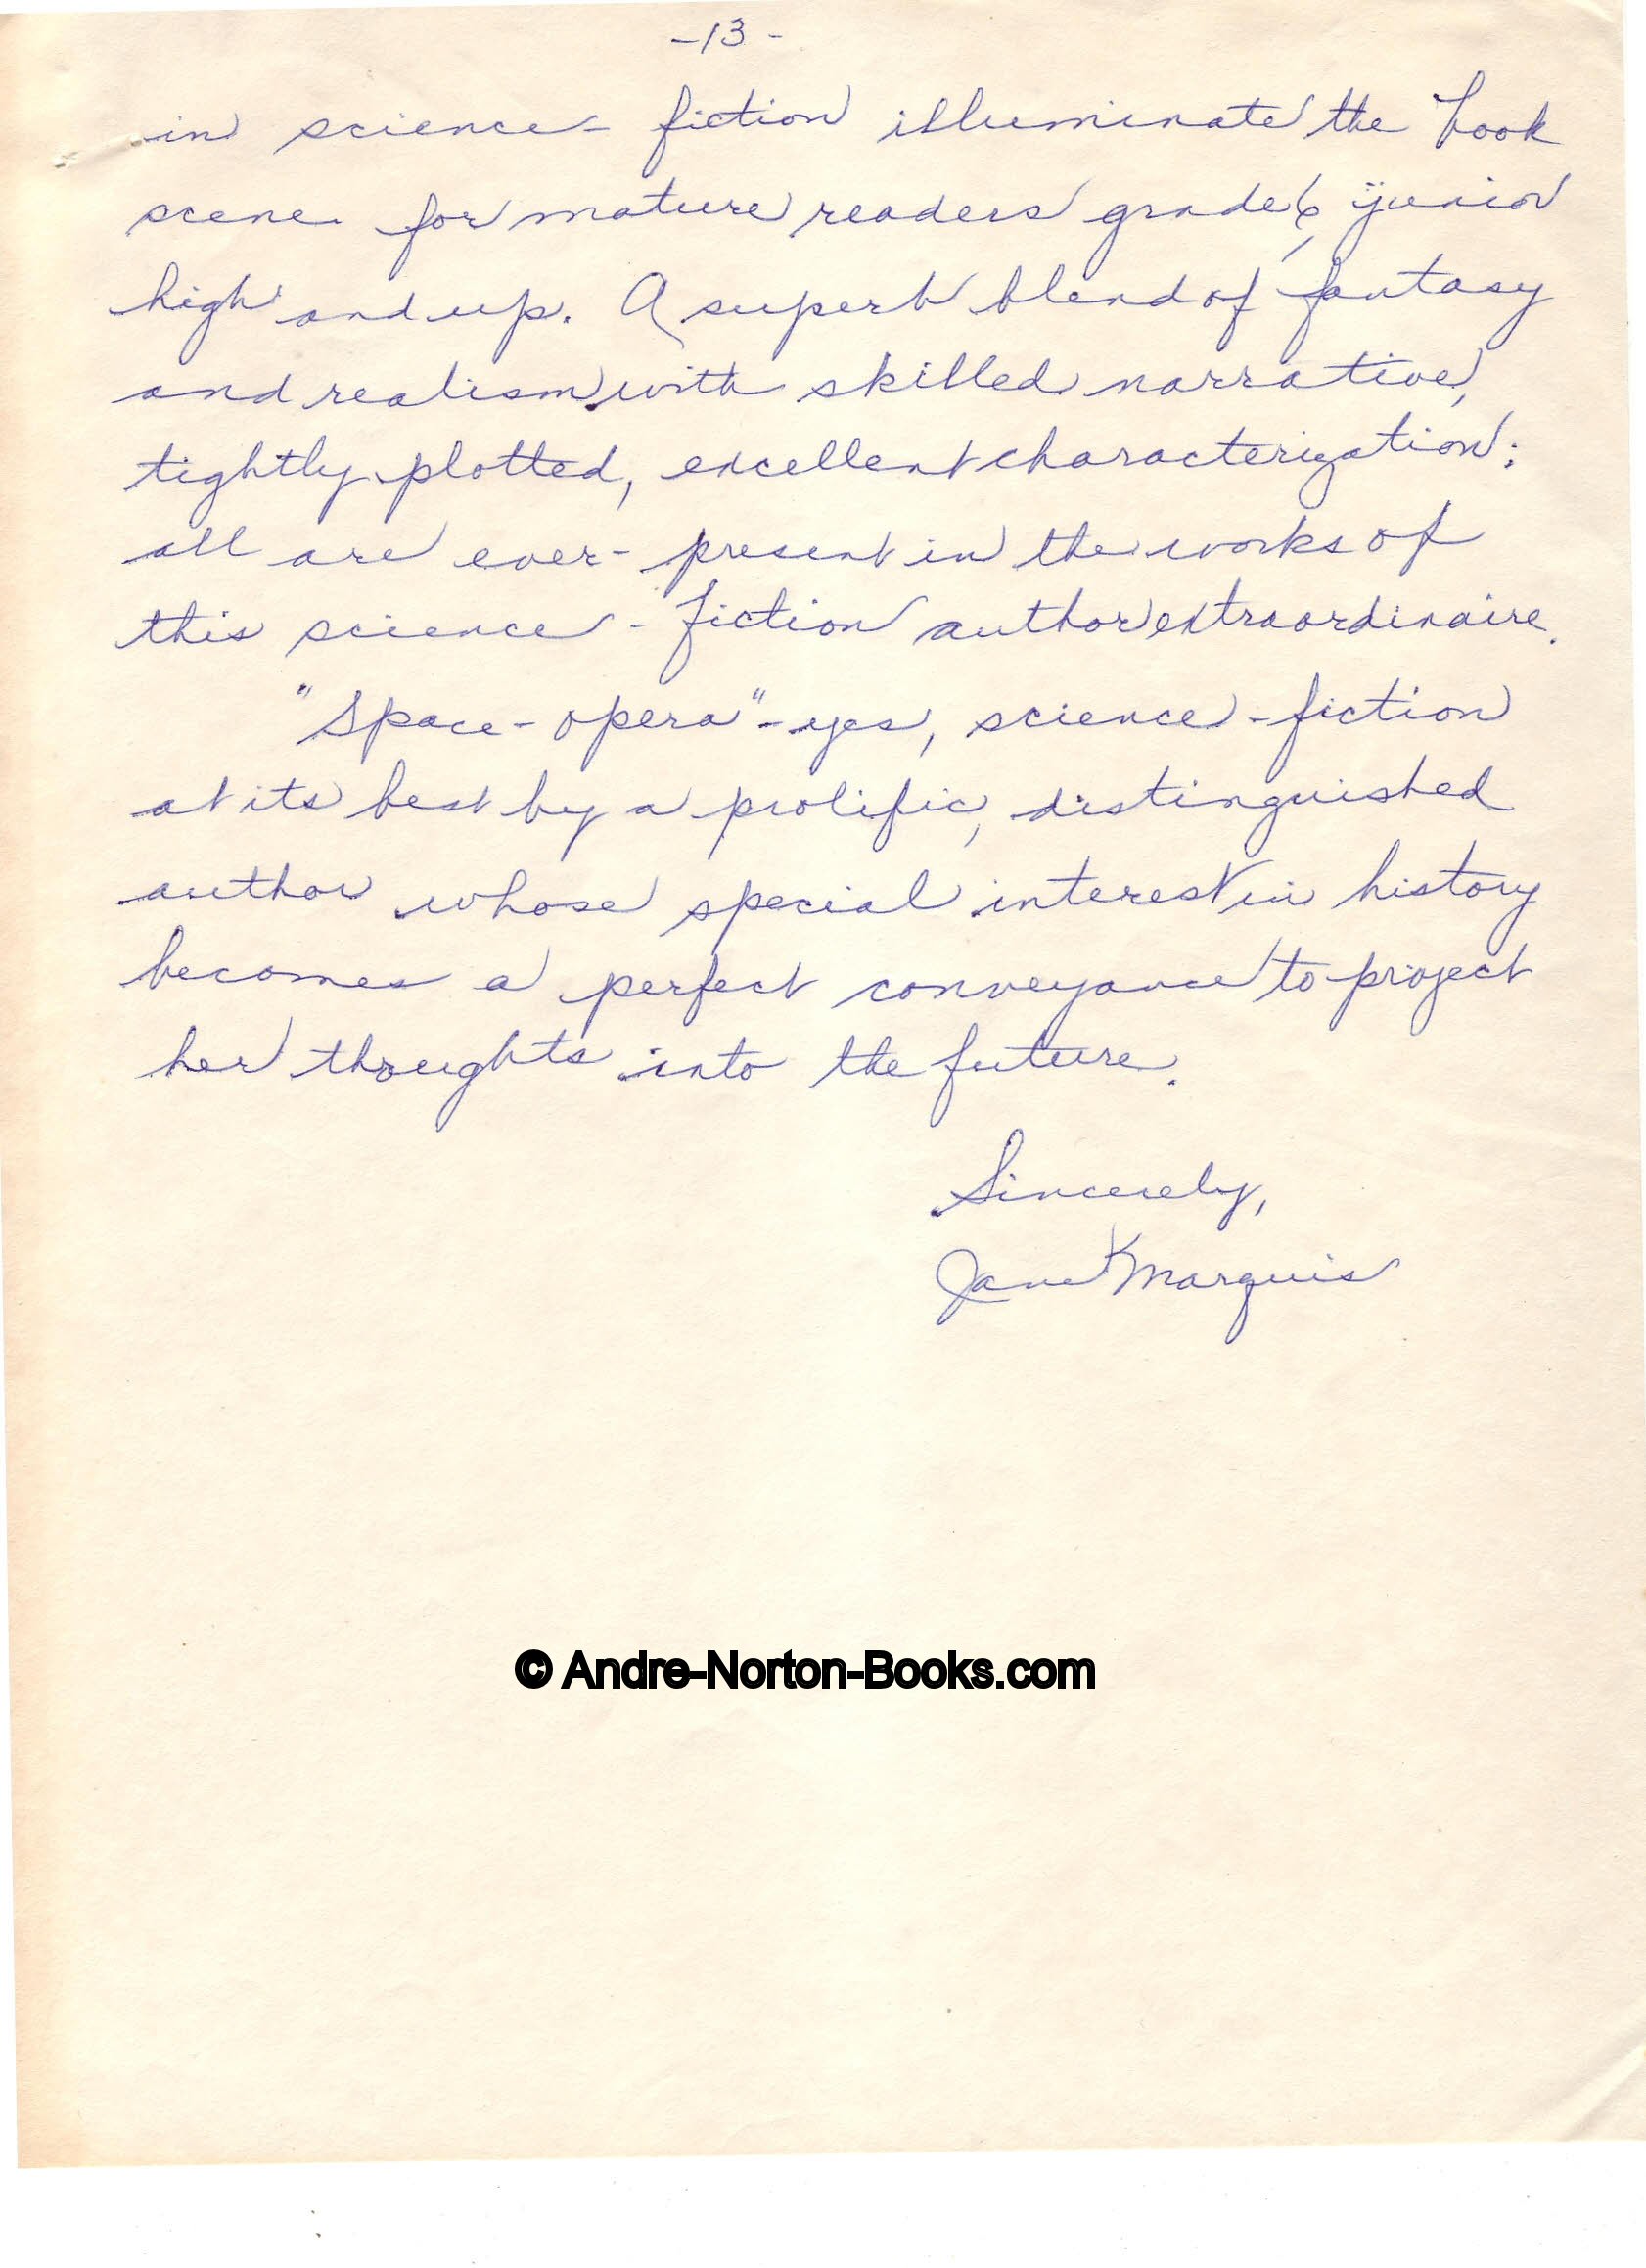 -13-
in science-fiction illuminate the book
scene for mature readers grade 6, junior
high and up. A superb blend of fantasy
and realism with skilled narrative,
tightly plotted, excellent characterization;
all are ever-present in the works of
this science-fiction author extraordinaire.
"Space-opera"-yes, science-fiction
at its best by a prolific, distinguished
author whose special interest in history
becomes a perfect conveyance to project
her thoughts into the future.
Sincerely,
Jane K Marquis
© Andre-Norton-Books.com